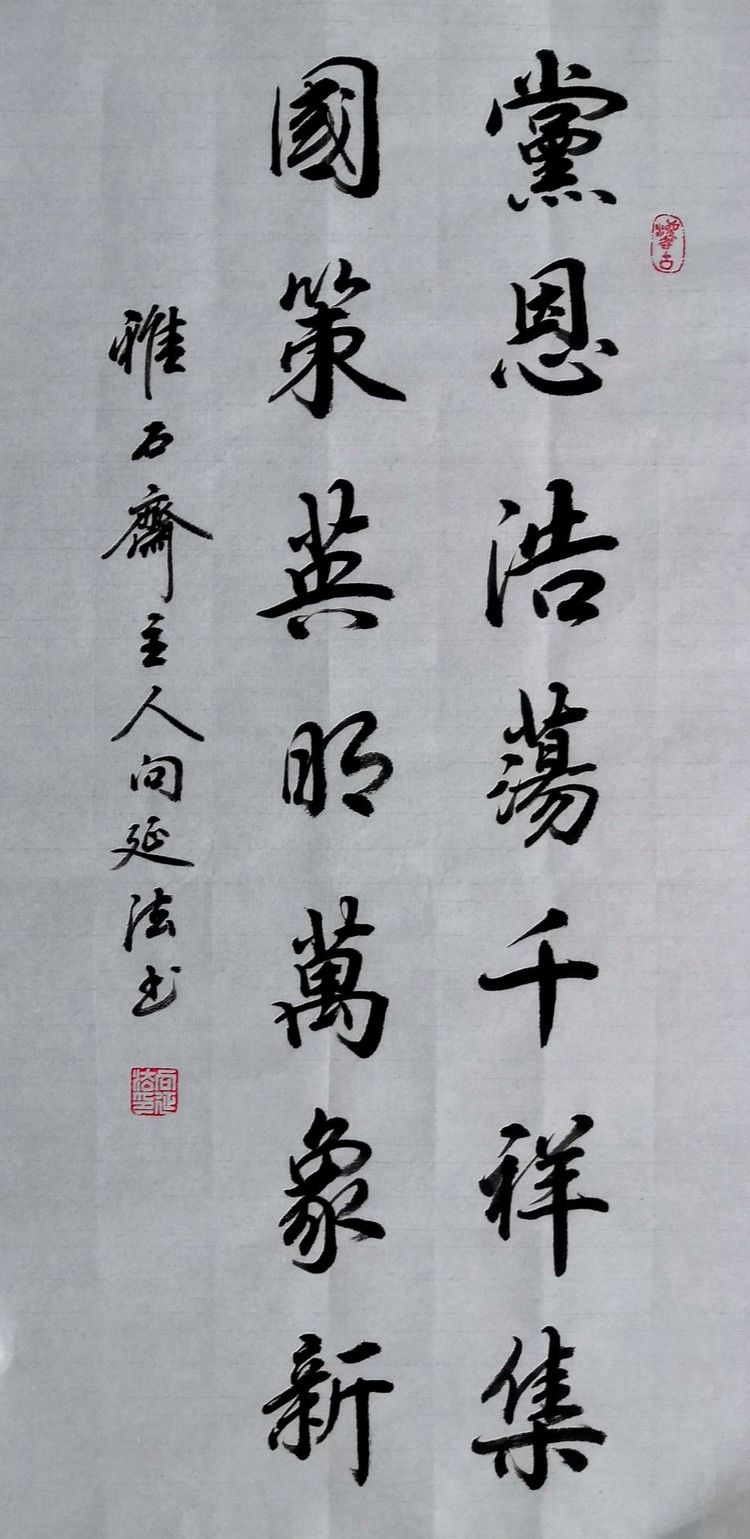 黨恩浩蕩千祥集
國策英明萬象新
雅石齋主人向延法书
向延法印